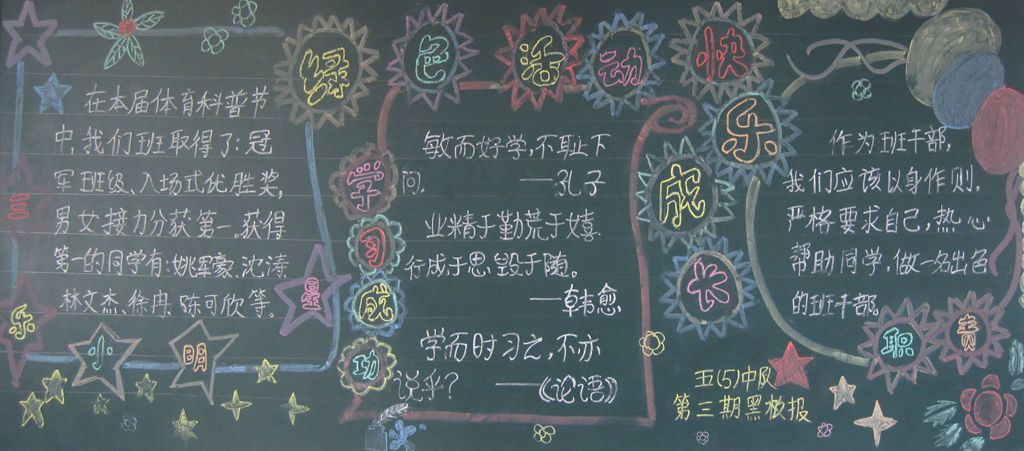 绿色活动快乐成长
在本届体育科普节
中,我们班取得了:冠
军班级、入场式优胜奖,
男女接力分获第一。获得
第一的同学有:姚军豪、沈涛
林文杰、徐冉、陈可欣等。
三乐小明星
学习成功
敏而好学,不耻下
问。——孔子
业精于勤荒于嬉
行成于思,毁于随。
——韩愈
学而时习之,不亦
说乎?——《论语》
作为班干部,
我们应该以身作则,
严格要求自己,热心
帮助同学,做一名出色
的班干部。
职责
五(5)中队
第三期黑板报